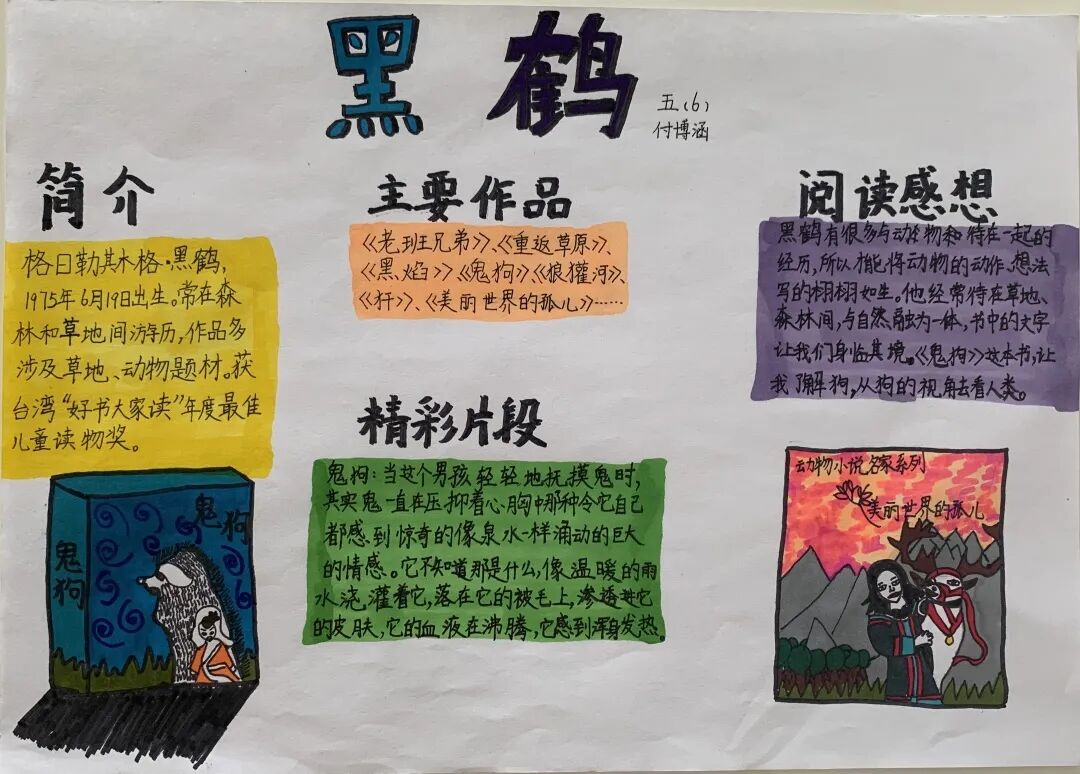 黑鹤
五(6)
付博涵
简介
格日勒其木格·黑鹤,
1975年6月19日出生。常在森
林和草地间游历,作品多
涉及草地、动物题材。获
台湾“好书大家读”年度最佳
儿童读物奖。
鬼狗
鬼狗
主要作品
《老班兄弟》、《重返草原》、
《黑焰》、《鬼狗》、《狼獾河》、
《犴》、《美丽世界的孤儿》……
精彩片段
鬼狗:当这个男孩轻轻地抚摸鬼时,
其实鬼一直在压抑着心胸中那种令它自己
都感到惊奇的像泉水一样涌动的巨大
的情感。它不知道那是什么,像温暖的雨
水浇灌着它,落在它的被毛上,渗透进它
的皮肤,它的血液在沸腾,它感到浑身发热。
阅读感想
黑鹤有很多与动物和待在一起的
经历,所以才能将动物的动作、想法
写的栩栩如生。他经常待在草地、
森林间,与自然融为一体,书中的文字
让我们身临其境。《鬼狗》这本书,让
我了解狗,从狗的视角去看人类。
动物小说名家系列
美丽世界的孤儿